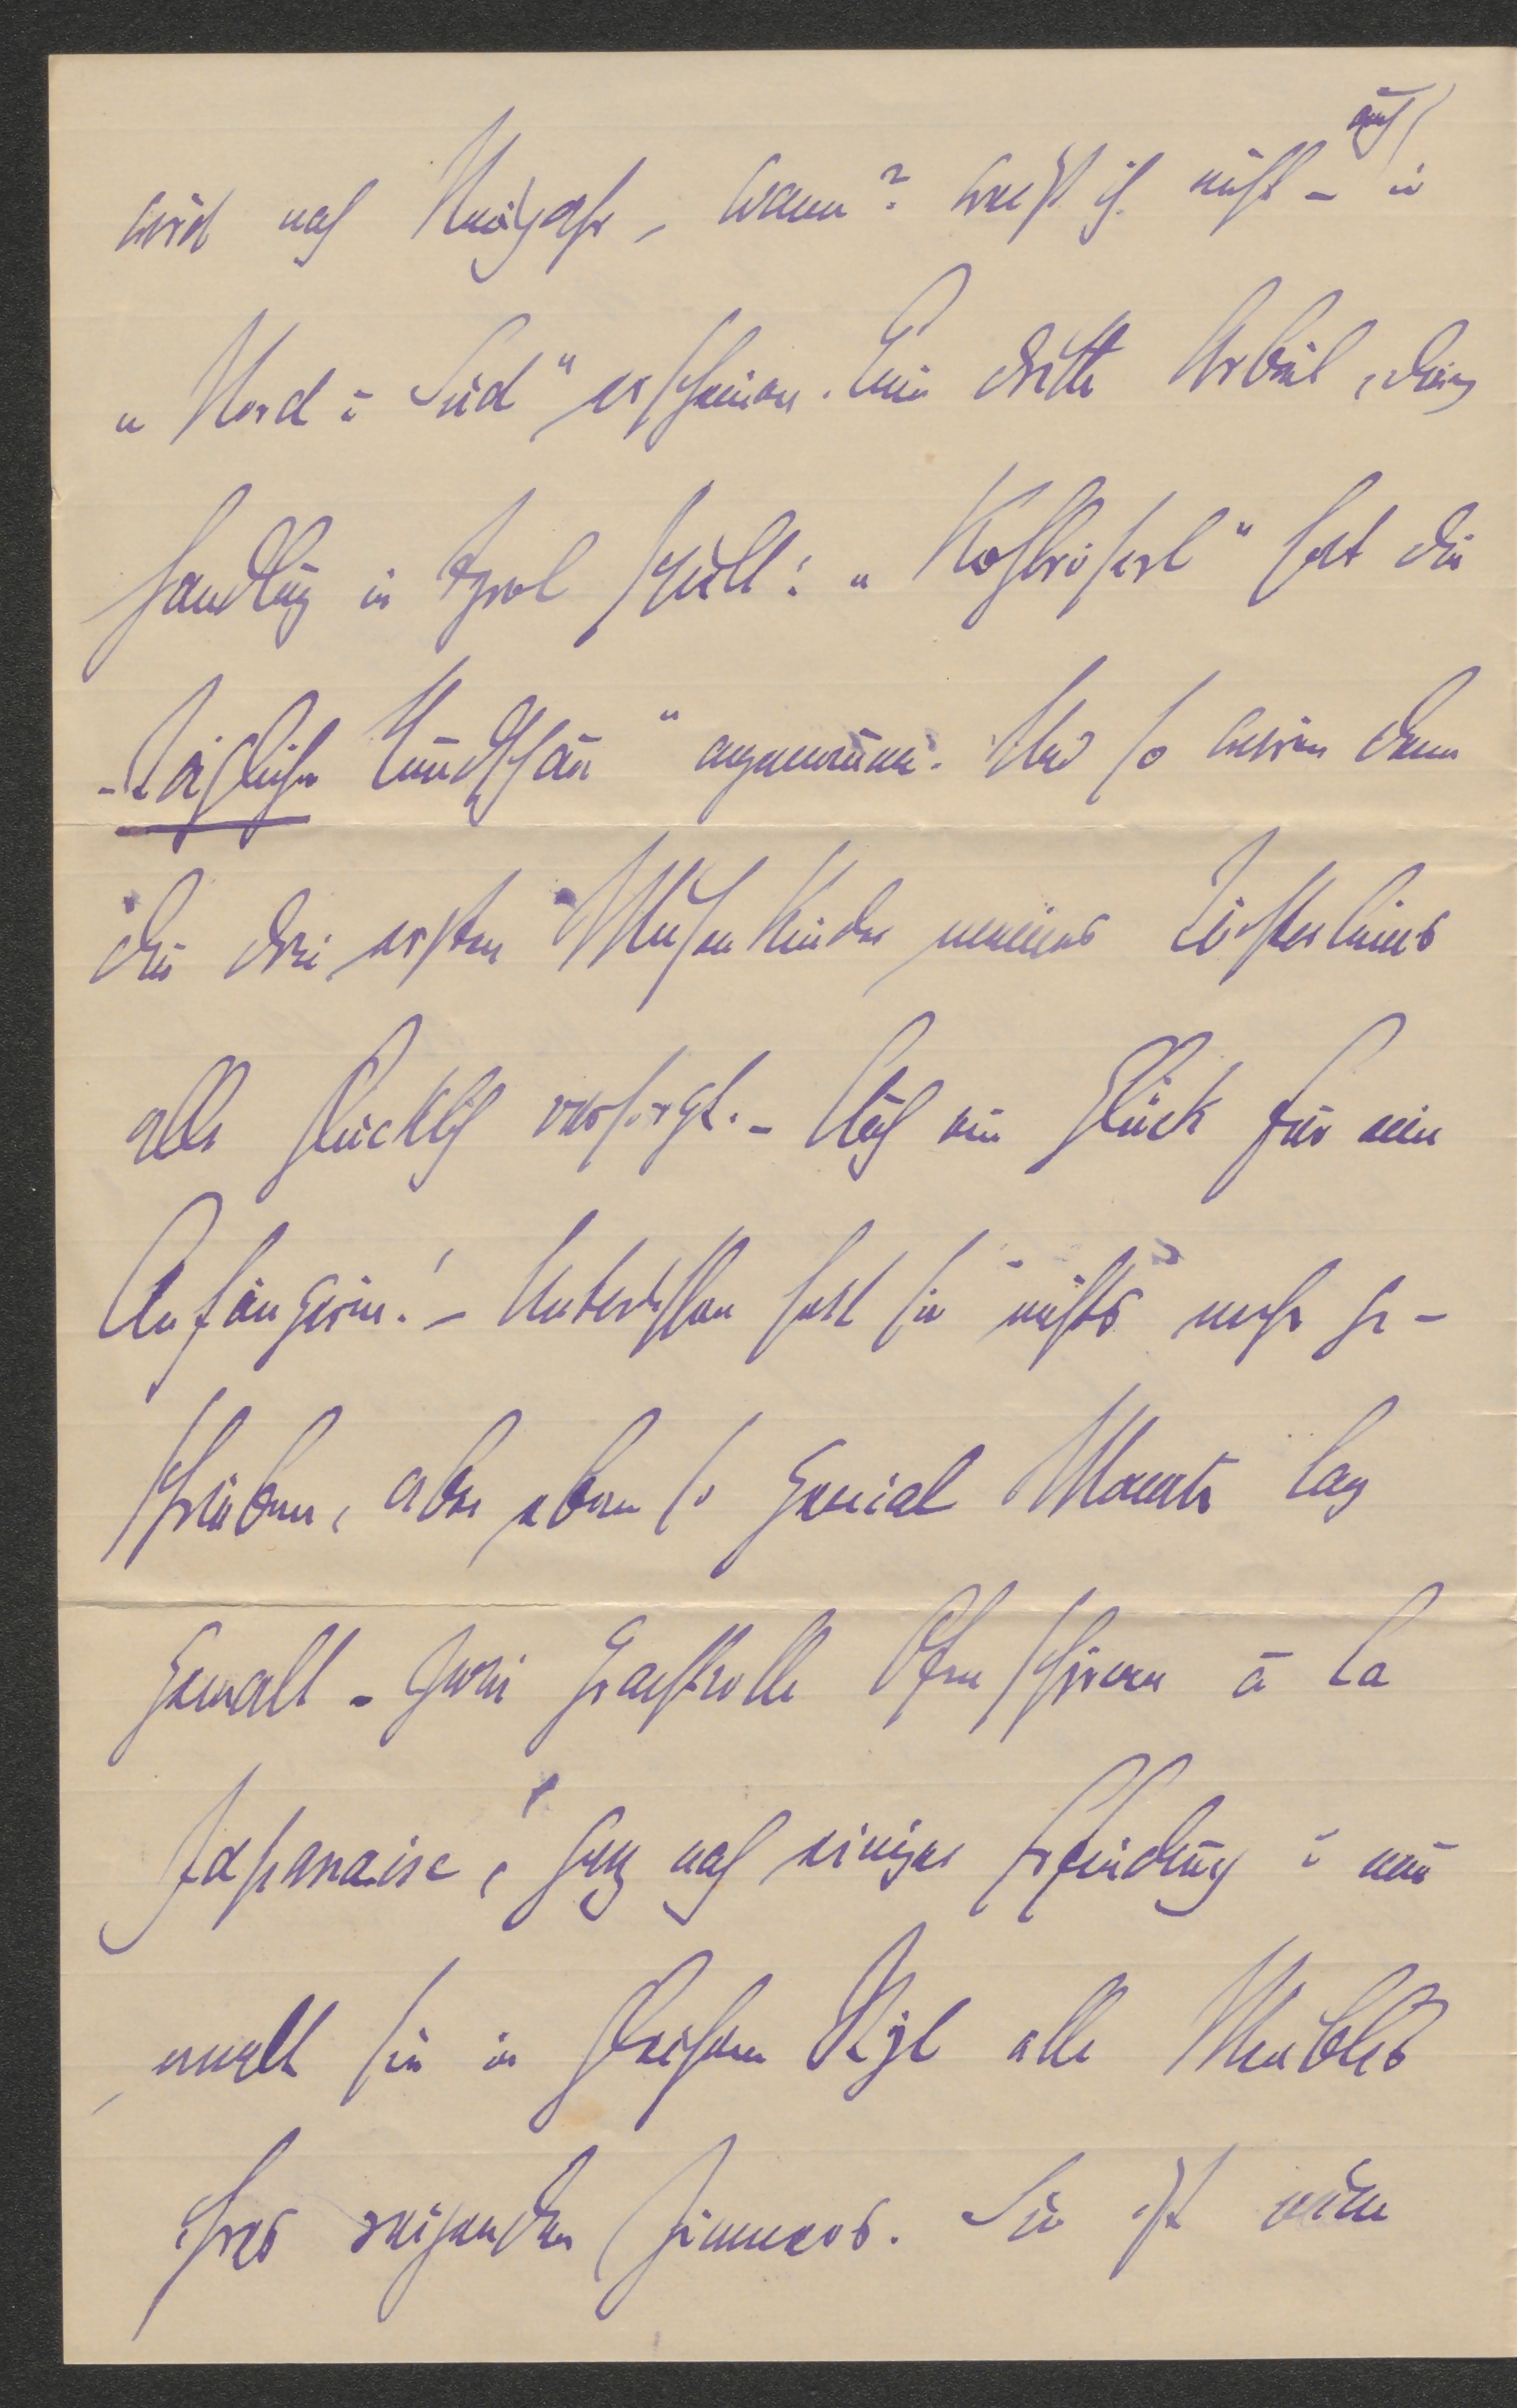 auch
wird nach Neujahr, wann? weiß ich nicht – in
„Nord u Süd" erscheinen. Eine dritte Arbeit, deren
Handlung in Tyrol spielt: „Kohlröserl" hat die
„Tägliche Rundschau" angenommen. Und so wären denn
die drei ersten Musenkinder meines Töchterleins
alle glücklich versorgt. – Auch ein Glück für eine
Anfängerin! – Unterdessen hat sie nichts mehr ge-
schrieben, aber eben so genial Monate lang
gemalt – zwei prachtvolle Ofenschirme à la
Japanaise, ganz nach eigener Erfindung u nun
malt sie in gleichem Styl alle Meubles
ihres reizenden Zimmers. Sie ist eine